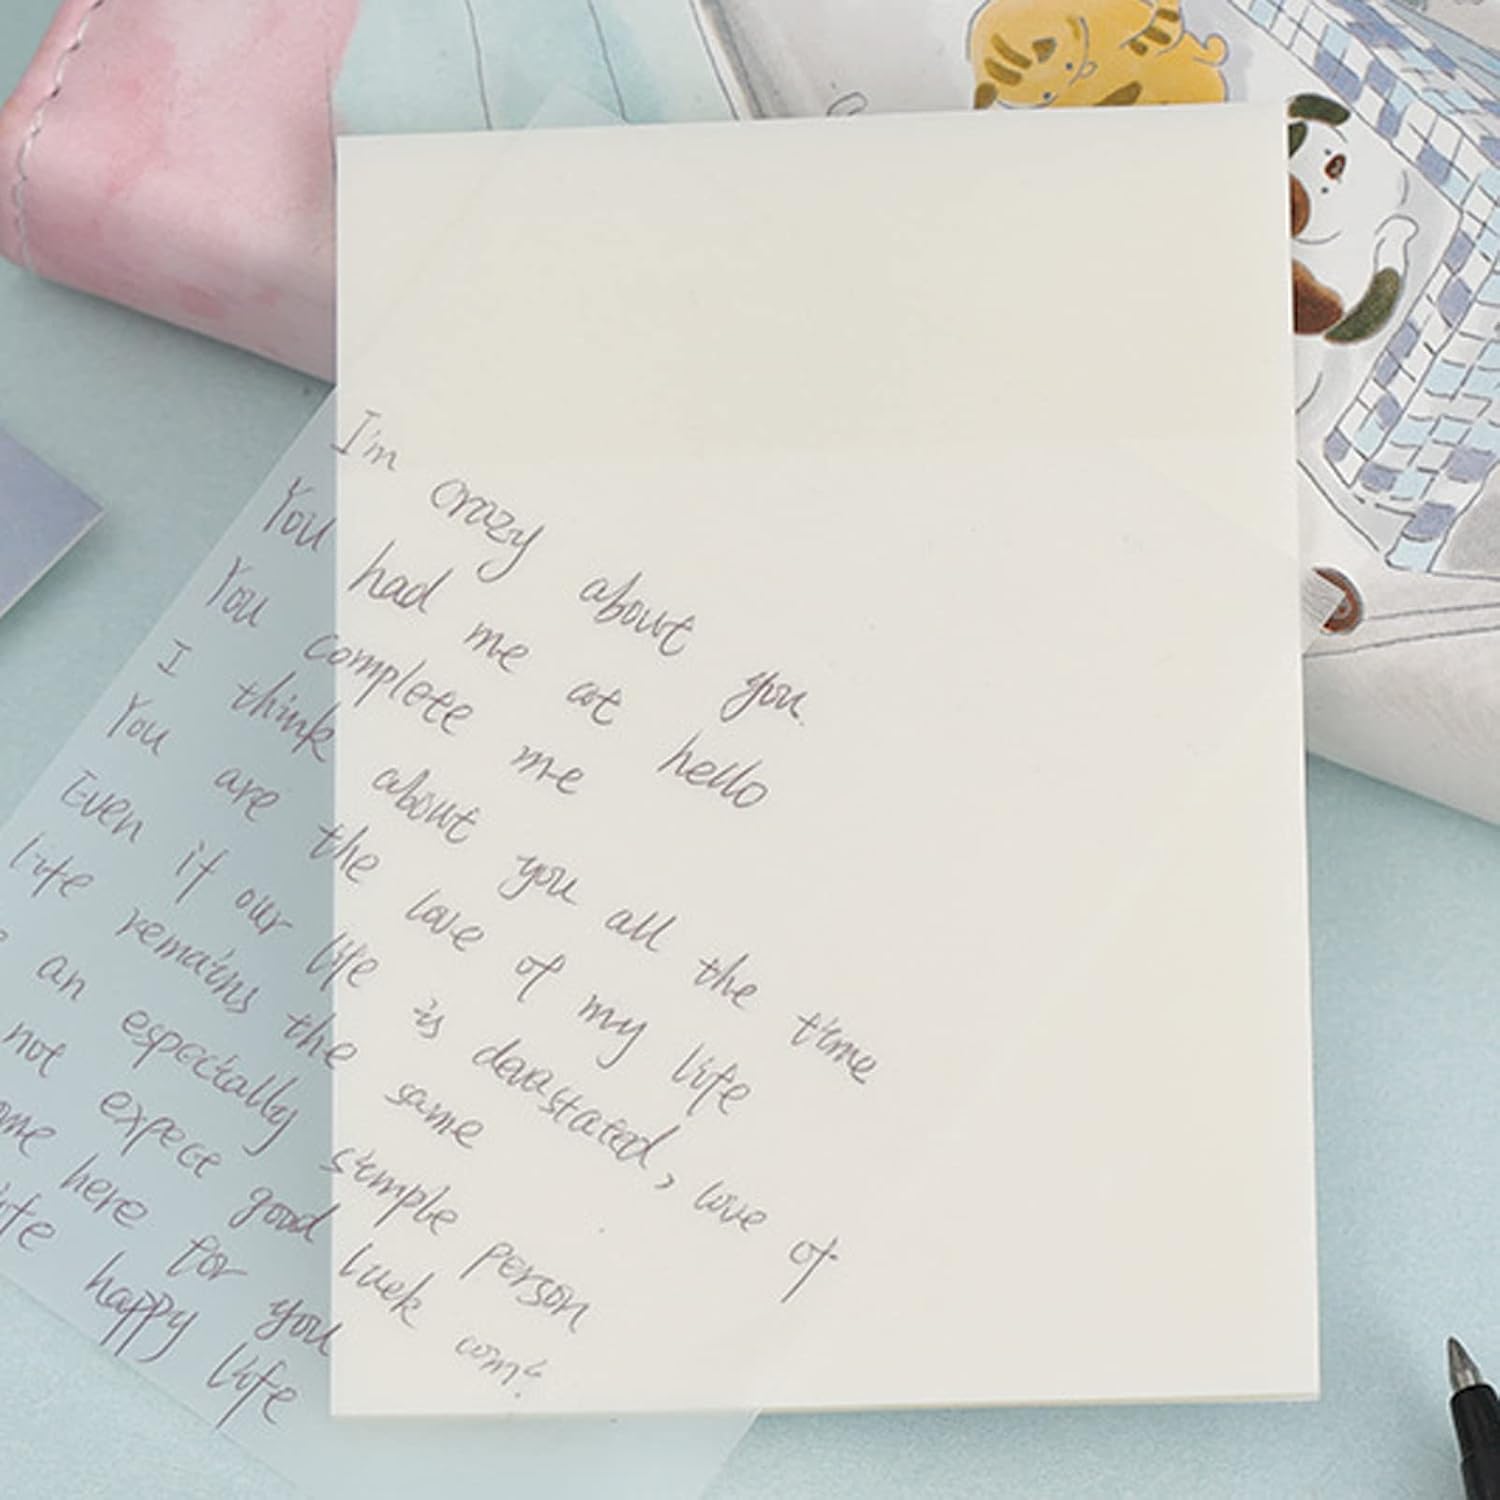 I'm crazy about you.
You had me at hello
You complete me
I think about you all the time
You are the love of my life
Even if our life is devastated, love of
life remains the same
an especially simple person
not expect good luck
here for you
happy life